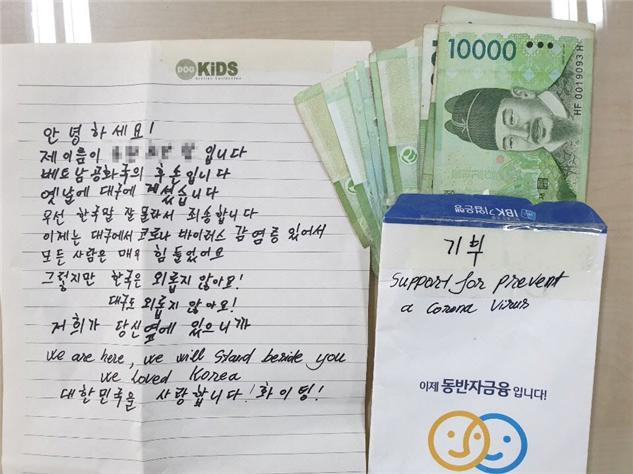 DOG KiDS
안녕하세요!
제 이름이 입니다
베트남공화국의 후손입니다
옛날에 대구에 계셨습니다
우선 한국말 잘 몰라서 죄송합니다
이제는 대구에서 코로나 바이러스 감염증 있어서
모든 사람은 매우 힘들었어요
그렇지만 한국은 외롭지 않아요!
대구도 외롭지 않아요!
저희가 당신 옆에 있으니까
we are here, we will stand beside you
we loved Korea
대한민국을 사랑합니다! 화이팅!
10000
HF 0019093 H
IBK기업은행
기부
Support for prevent
a corona virus
이제 동반자금융입니다!